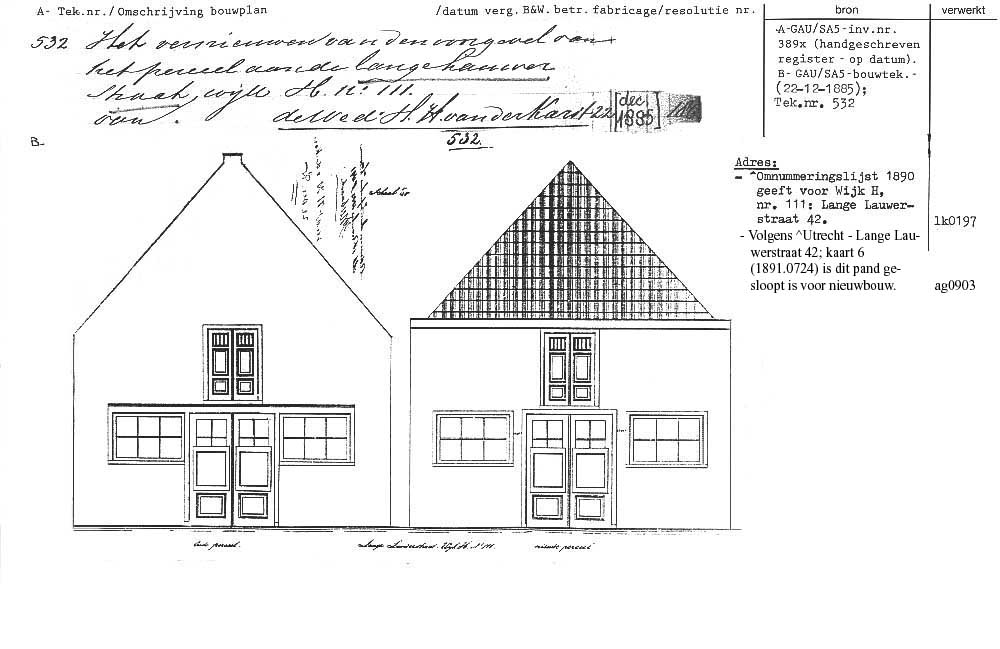 A- Tek.nr./Omschrijving bouwplan /datum verg. B&W. betr. fabricage/resolutie nr. bron verwerkt
532 Het vernieuwen van den voorgevel van
het perceel aan de lange Lauwer
straat, wijk H. nº 111.
door de Wed. H. H. van der Karst 22 dec. 1885
A-GAU/SA5-inv.nr.
389x (handgeschreven
register - op datum).
B- GAU/SA5-bouwtek.-
(22-12-1885);
Tek.nr. 532
B-
532.
Schaal
Adres:
- ^Omnummeringslijst 1890
geeft voor Wijk H,
nr. 111: Lange Lauwer-
straat 42.
lk0197
- Volgens ^Utrecht - Lange Lau-
werstraat 42; kaart 6
(1891.0724) is dit pand ge-
sloopt is voor nieuwbouw.
ag0903
Oude perceel.
Lange Lauwerstraat. Wijk H. Nº 111
nieuwe perceel